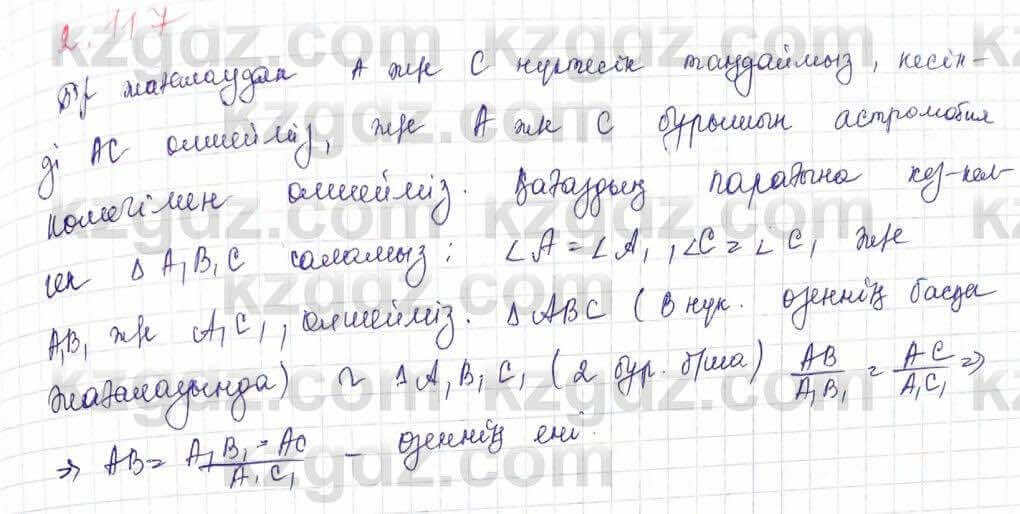 2.117
Бір жағалаудан А және С нүктесін таңдаймыз, кесін-
ді АС өлшейміз, және А және С бұрышын астромобил
көмегімен өлшейміз. Дәтаздың парағына кез-кел-
ген ∆ A₁B₁C саламыз: ∠A = ∠A₁, ∠C = ∠C₁ және
A₁B₁ және A₁C₁, өлшейміз. ∆ABC (В нүк. өзеннің басқа
жағалауында) ~ ∆A₁B₁C₁ (2 бұр. б/ша) AB/A₁B₁ = AC/A₁C₁ =>
=> AB = A₁B₁ · AC/A₁C₁ – өзеннің ені.
kzgdz.com